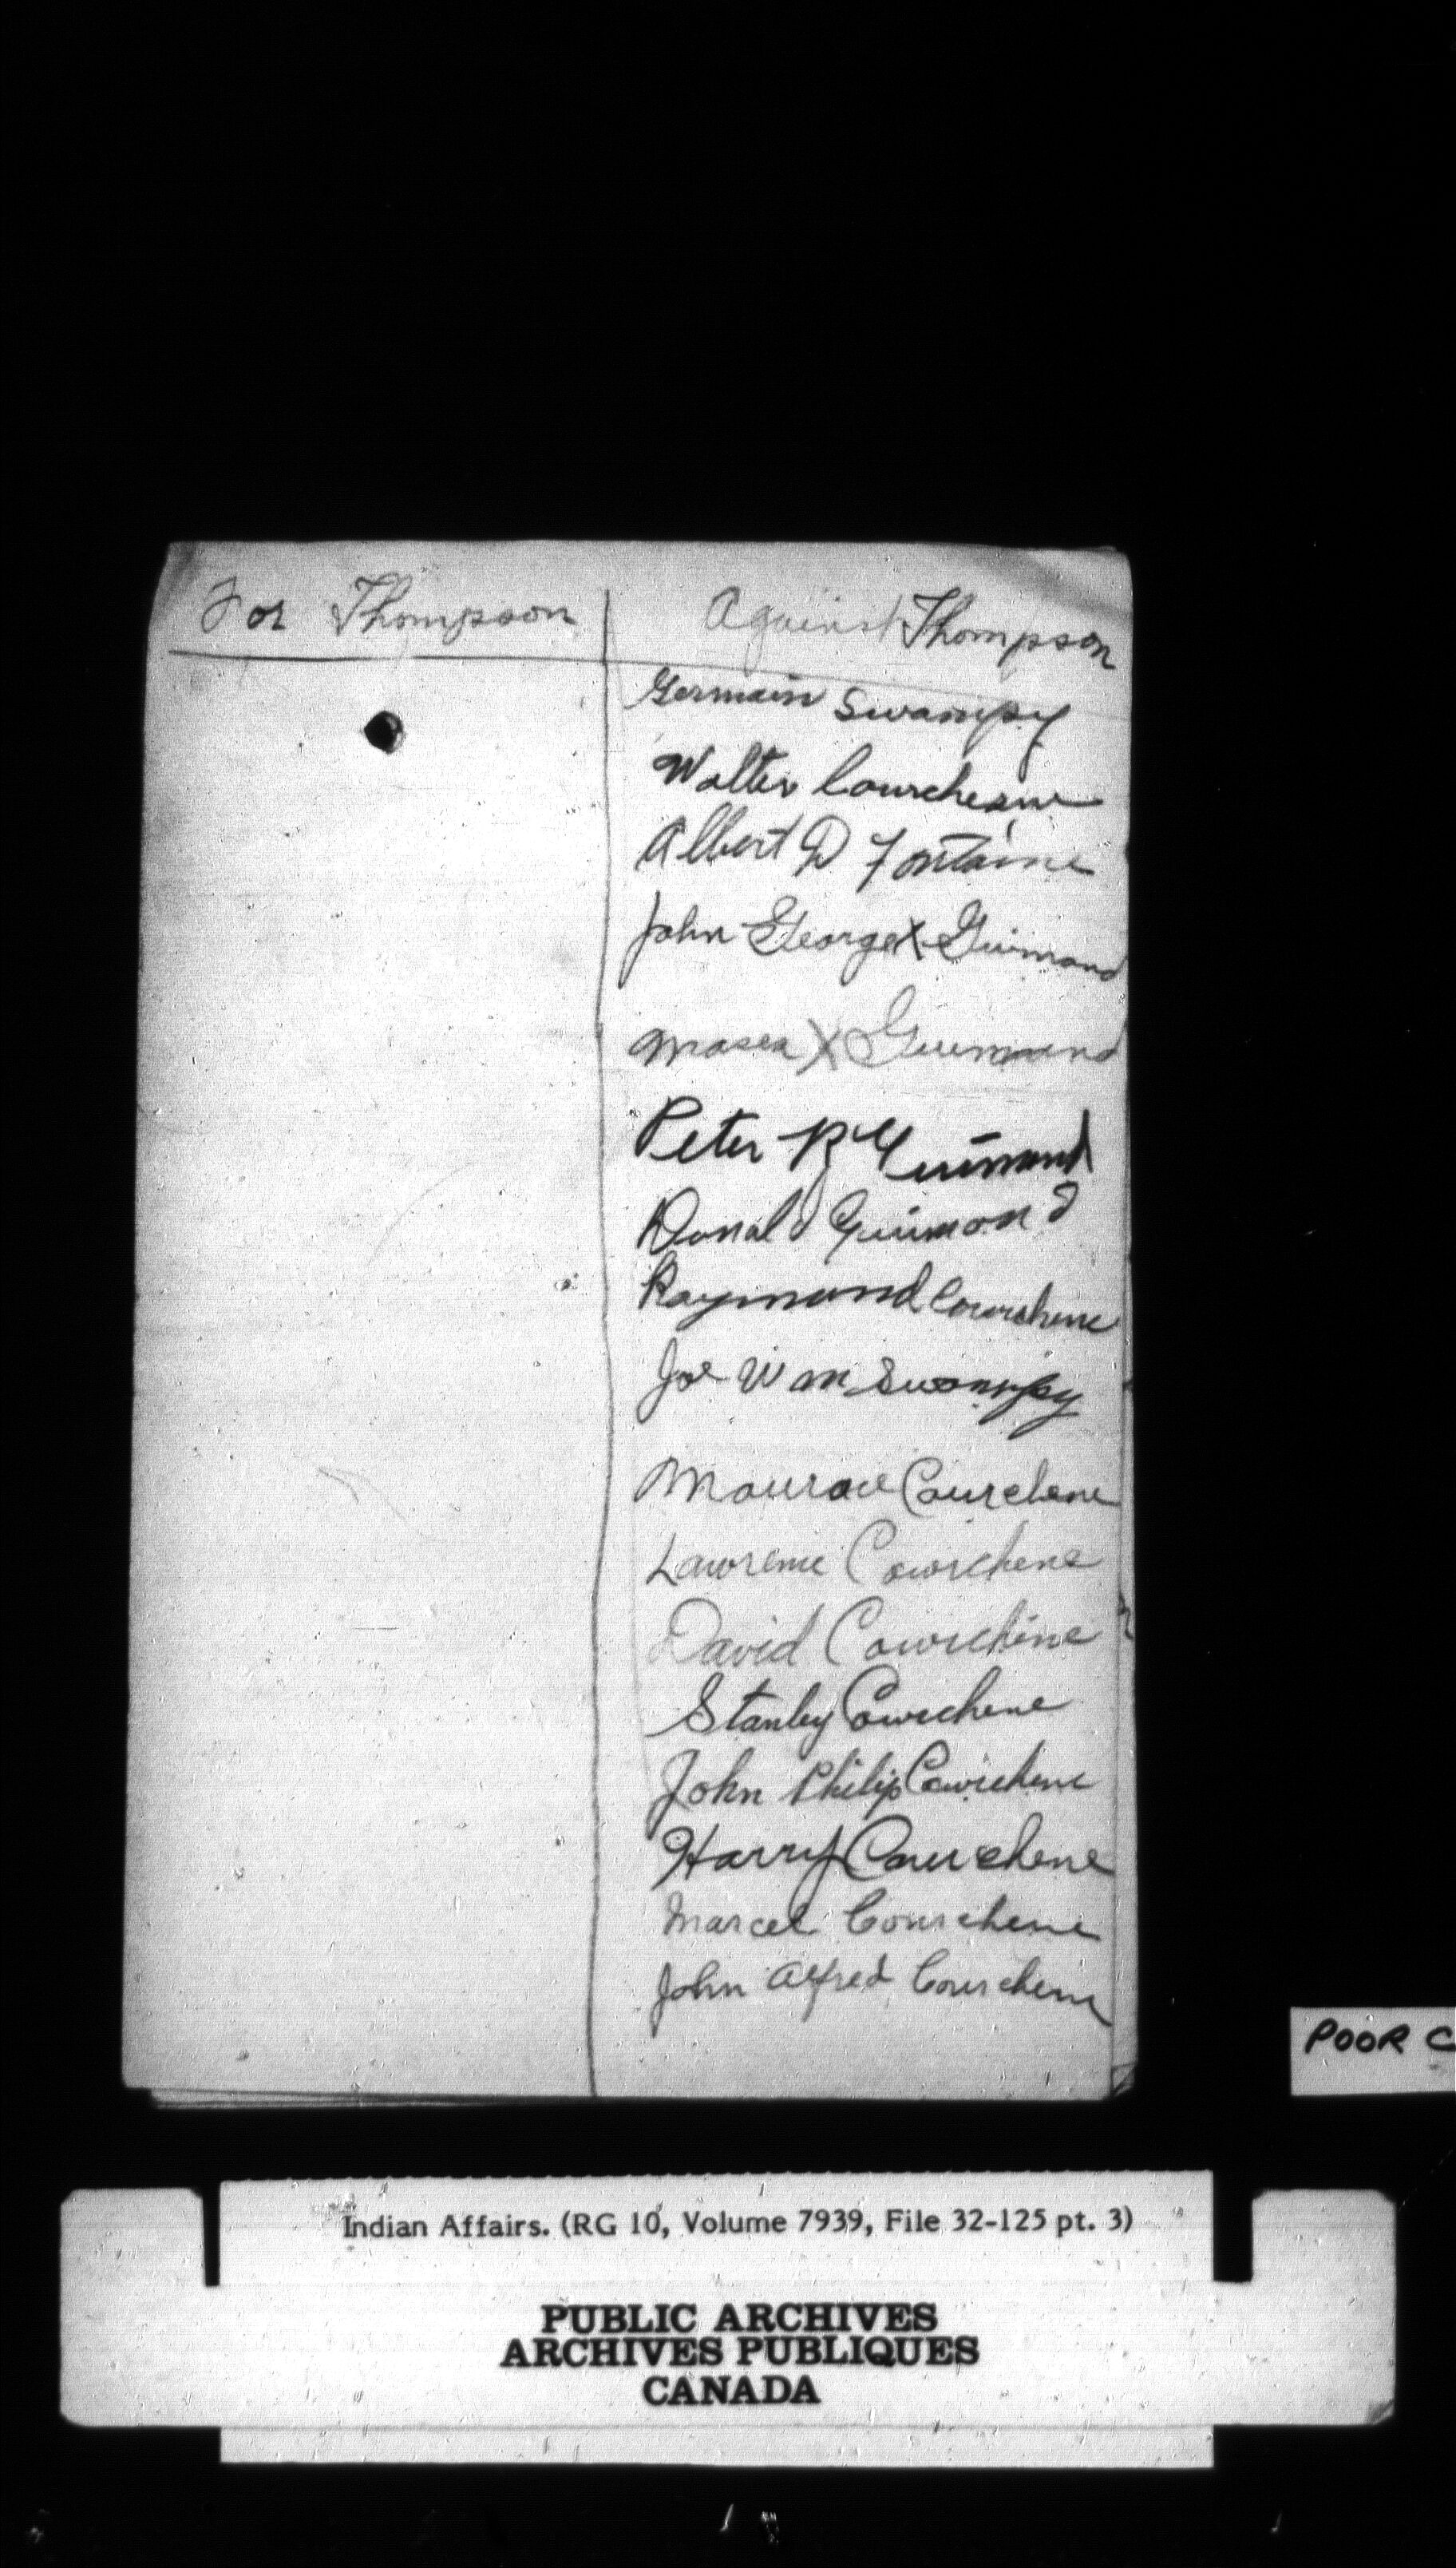 For Thompson
Against Thompson
Germain Swampy
Walter Courchene
Albert D Fontaine
John George X Guimond
Moses X Guimond
Peter R Guimond
Donald Guimond
Raymond Courchene
Joe Wm Swampy
Courchene
Lawrence Courchene
David Courchene
Stanley Courchene
John Philip Courchene
Harry Courchene
Marcel Courchene
John Alfred Courchene
POOR C
Indian Affairs. (RG 10, Volume 7939, File 32-125 pt. 3)
PUBLIC ARCHIVES
ARCHIVES PUBLIQUES
CANADA